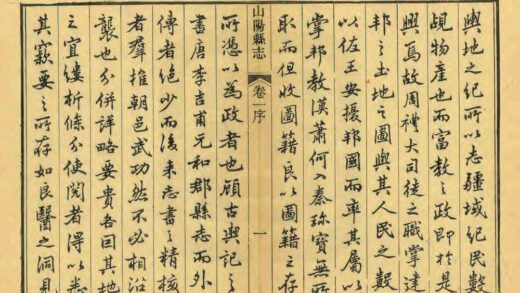 輿地之紀所以志疆域紀民數
覘物產也而富教之政即於是
興焉故周禮大司徒之職掌建
邦之土地之圖與其人民之數
以佐王安擾邦國而率其屬以
掌邦教漢蕭何入秦珍寶無所
取而但收圖籍良以圖籍之存
山陽縣志
卷一序
一
所憑以為政者也顧古輿記之
書唐李吉甫元和郡縣志而外
傳者絕少而後來志書之精核
者羣推朝邑武功然不必相沿
襲也分併詳略要貴各因其地
之宜縷析條分使閱者得以悉
其竅要之所存如良醫之洞見